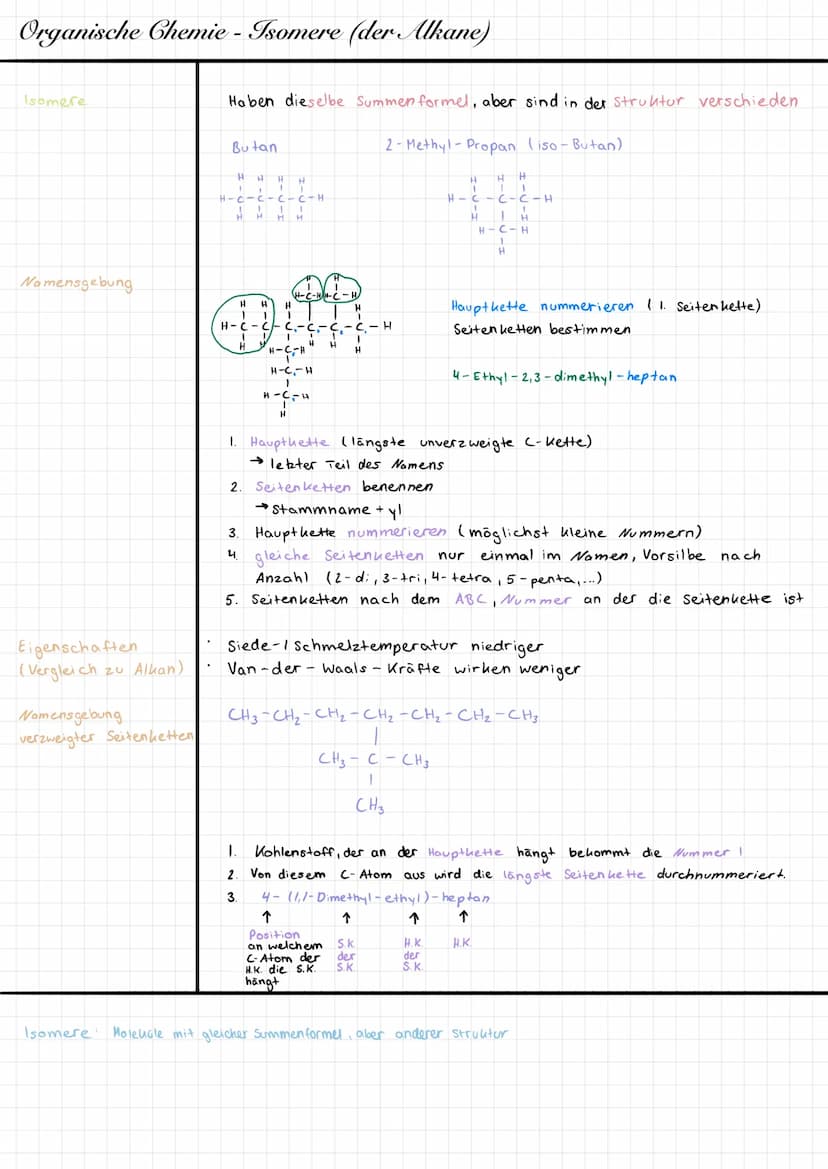 Organische Chemie - Isomere (der Alkane)
Isomere
Haben dieselbe Summenformel, aber sind in der Struktur verschieden
Butan
2-Methyl-Propan (iso-Butan)
H H H H
H-C-C-C-C-H
H H H H
H H H
H-C-C-C-H
H H
H-C-H
H
Namensgebung
H H
H-C-H H-C-H
H H H H
H-C-C-C-C-C-C-H
H H H H H
H-C-H
H-C-H
H-C-H
H
Hauptkette nummerieren (1. Seitenkette)
Seitenketten bestimmen
4-Ethyl-2,3-dimethyl-heptan
1. Hauptkette (längste unverzweigte C-Kette)
→ letzter Teil des Namens
2. Seitenketten benennen
→ Stammname + yl
3. Hauptkette nummerieren (möglichst kleine Nummern)
4. gleiche Seitenketten nur einmal im Namen, Vorsilbe nach
Anzahl (2-di, 3-tri, 4-tetra, 5-penta,...)
5. Seitenketten nach dem ABC, Nummer an der die Seitenkette ist
Eigenschaften
(Vergleich zu Alkan)
· Siede-/Schmelztemperatur niedriger
· Van-der-Waals-Kräfte wirken weniger
Namensgebung
verzweigter Seitenketten
CH₃-CH₂-CH₂-CH₂-CH₂-CH₂-CH₃
CH₃-C-CH₃
CH₃
1. Kohlenstoff, der an der Hauptkette hängt bekommt die Nummer 1
2. Von diesem C-Atom aus wird die längste Seitenkette durchnummeriert.
3. 4-(1,1-Dimethyl-ethyl)-heptan
↑ ↑ ↑ ↑
Position
an welchem
C-Atom der
H.K. die S.K.
hängt
S.K.
der
S.K.
H.K.
der
S.K.
H.K.
Isomere: Moleküle mit gleicher Summenformel, aber anderer Struktur